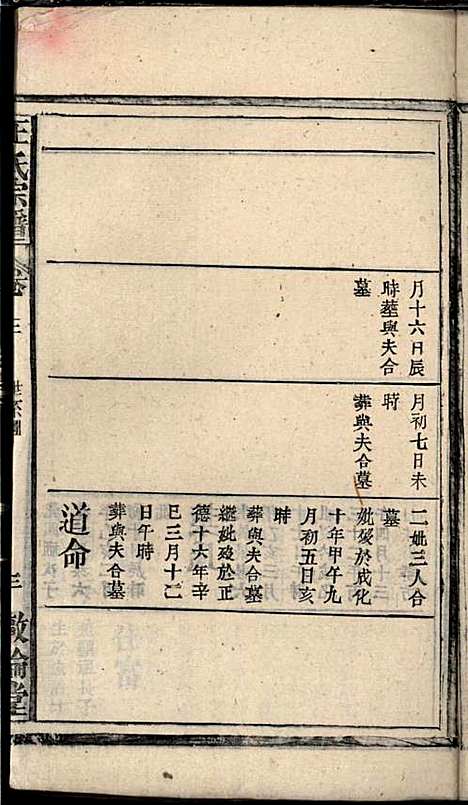 月十六日辰
時塟與夫合
墓
月初七日未
時
葬與夫合墓
二妣三人合
墓
妣殁於成化
十年甲午九
月初五日亥
時
葬與夫合墓
繼妣殁於正
德十六年辛
巳三月十二
日午時
葬與夫合墓
道命
王氏宗譜
卷三
世系圖
三
敦倫堂